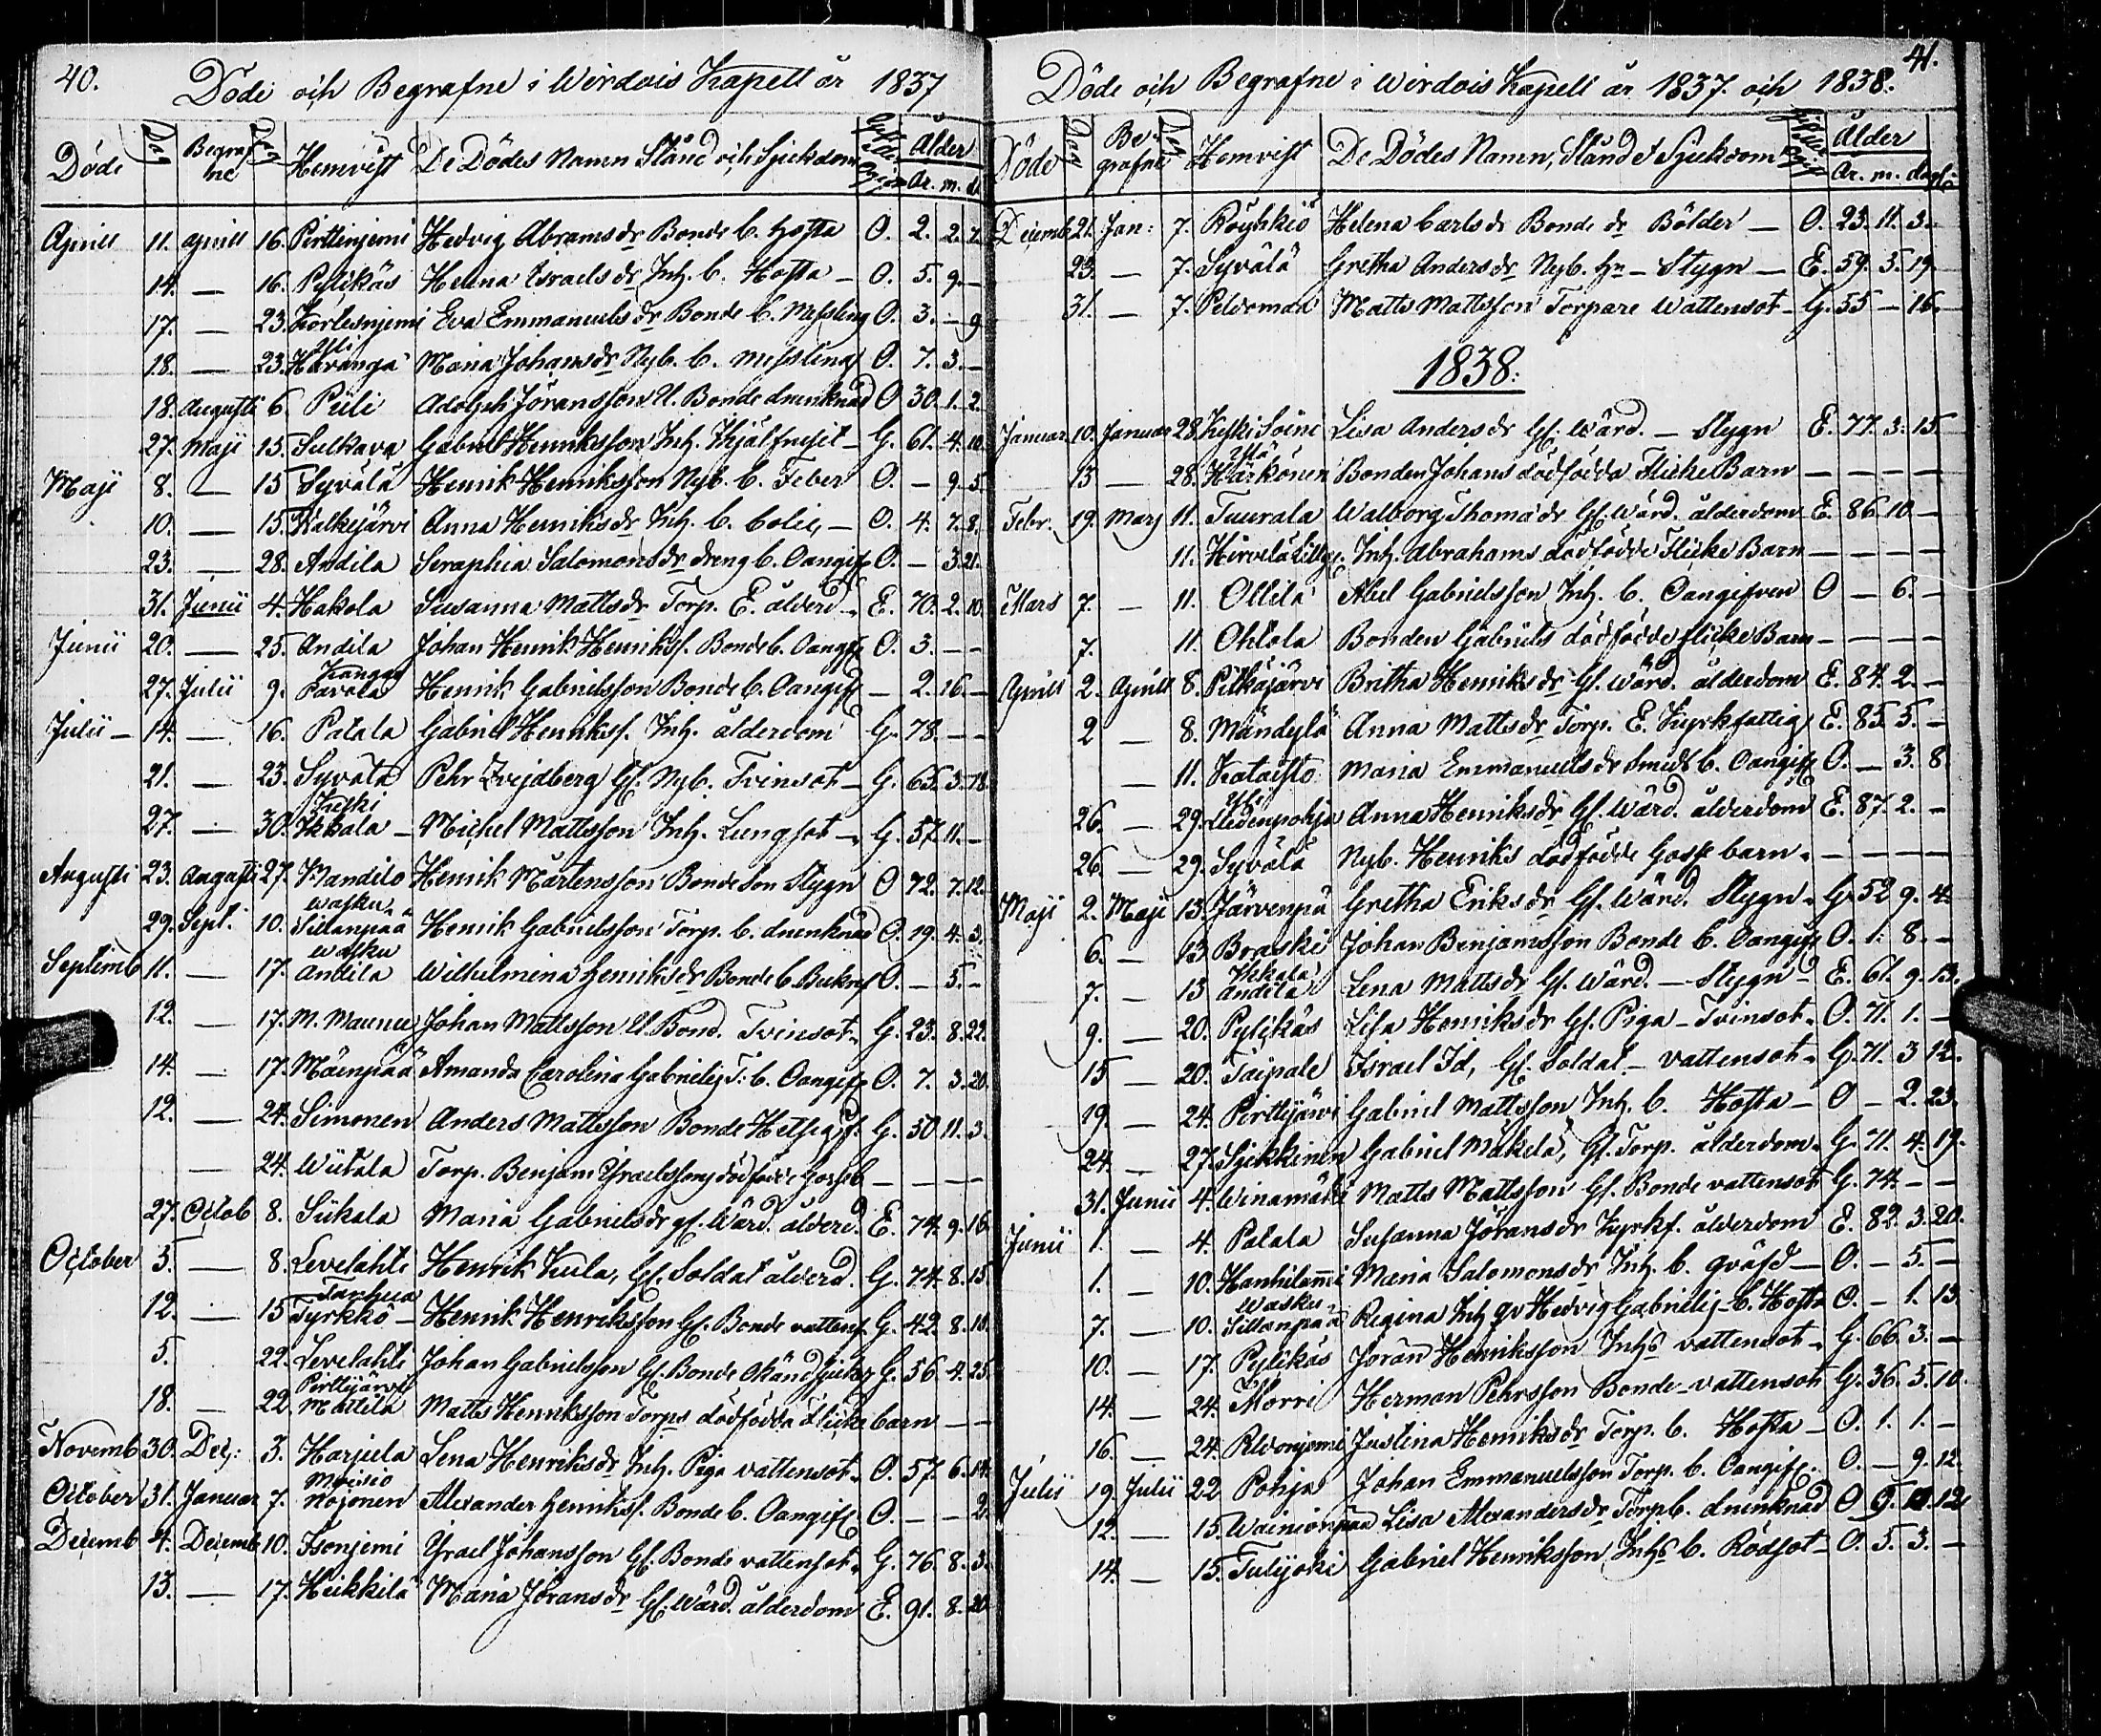 40.
Döde och Begrafne i Wirdois Kapell år 1837
Döde Dag Begrafne Dag Hemvist De Dödes Namn Stånd och Sjukdom Ålder År. m. d.
Aprill 11. Aprill 16. Pirttinjemi Hedvig Abrams dr Bonde b. Hosta O. 2. 2. 2.
14. — 16. Pylikäs Helena Israels dr Inh. b. Hosta — O. 5. 9. —
17. — 23. Kortesnjemi Eva Emmanuels dr Bonde b. Messling O. 3. — 9
18. — 23. Yli Havanga Maria Johans dr Nyb. b. Messling O. 7. 3. —
18. Augusti 6. Püli Adolph Jöransson U. Bonde drunknad O 30. 1. 2.
27. Maji 15. Sulkava Gabriel Henriksson Inh. Ihjälfrusit — G. 61. 4. 10.
Maji 8. — 15 Syvälä Henrik Henriksson Nyb. b. Feber O. — 9. 5.
10. — 15. Kalkejärvi Anna Henriks dr Inh. b. Colic, — O. 4. 7. 8.
23. — 28. Andila Seraphia Salomons dr dreng b. Oangif. O. — 3. 21.
31. Junii 4. Hakola Susanna Matts dr Torp. E. ålderd. — E. 70. 2. 10.
Junii 20. — 25. Andila Johan Henrik Henrikss. Bonde b. Oangif. O. 3. — —
27. Julii 9. Kangas Pavola Henrik Gabrielsson Bonde b. Oangif. — 2. 16. —
Julii — 14. — 16. Patala Gabriel Henrikss. Inh. ålderdom G. 78. — —
21. — 23. Syvälä Pehr Gf. Nyb. Tvinsot — G. 65. 3. 18.
27. — 30. Keski Ikkala — Michel Mattsson Inh. Lungsot — G. 57. 11. —
Augusti 23. Augusti 27. Mandilo Henrik Mårtensson Bonde Son Stygn O 72. 7. 12.
29. Sept. 10. Wasku Sillanpää Henrik Gabrielsson Torp. b. drunknad O. 19. 4. 3.
Septemb 11. — 17. Wasku Andila Wilhelmina Henriks dr Bonde b. Bukref O. — 5. —
12. — 17. M. Maunu Johan Mattsson U. Bond. Tvinsot — G. 23. 8. 22.
14. — 17. Mäenpää Amanda Carolina Gabrielis T. b. Oangif. O. 7. 3. 20.
12. — 24. Simonen Anders Mattsson Bonde Hetsigf. G. 50. 11. 3.
— 24. Wiitala Torp. Benjam Israelssons dödfödde Gosseb — — — —
27. Octob 8. Sukala Maria Gabriels dr gf. Wärd. ålderd. E. 74. 9. 16.
October 3. — 8. Levelahti Henrik Kula, Gf. Soldat ålderd. G. 74. 8. 15
12. — 15 Tanhua Tyrkkö — Henrik Henriksson Gf. Bonde vattens. G. 42. 8. 18.
5. 22. Levelahti Johan Gabrielsson Gf. Bonde Okänd sjukd. G. 56. 4. 25.
18. — 22. Pirttijärvi Mattila Matts Henriksson Torps dödfödda Flicke barn — —
Novemb 30. Dec: 3. Harjula Lena Henriks dr Inh. Piga vattensot. O. 57. 6. 14.
October 31. Januar 7. Mojonen Alexander Henrikss. Bonde b. Oangif. O. — — 2.
Decemb 4. Decemb 10. Isonjemi Israel Johansson Gf. Bonde vattensot. G. 76. 8. 3.
13. — 17. Heikkilä Maria Jörans dr Gf. Wärd. ålderdom E. 91. 8. 20.
41.
Döde och Begrafne i Wirdois Kapell år 1837. och 1838.
Döde Dag Begrafne Dag Hemvist De Dödes Namn, Stånd & Sjukdom Ålder År. m. dag.
Decemb 21. Jan: 7. Röyhkiö Helena Carls dr Bonde dr Bölder — O. 23. 11. 3.
23. — 7. Syvälä Gretha Anders dr Nyb. Hu — Stygn — E. 59. 5. 19.
31. — 7. Peldomaa Matts Mattsson Torpare Wattensot — G. 55 — 16.
1838:
Januar. 10. Januar 28. Keski Soini Lisa Anders dr Gf. Wärd. — Stygn E. 77. 3. 15.
13 — 28. Ylä Härkönen Bonden Johans dödfödda Flicke Barn — — — —
Febr. 19. Mars 11. Tuurala Walborg Thoma dr Gf. Wärd. ålderdom E. 86. 10. —
11. Inh. Abrahams dödfödde Flicke Barn — — — —
Mars 7. — 11. Ollila Abel Gabrielsson Inh. b. Oangifven O — 6. —
7. 11. Ohtola Bonden Gabriels dödfödde flicke Barn — — — —
Aprill 2. Aprill 8. Pitkäjärvi Britha Henriks dr Gf. Wärd. ålderdom E. 84. 2. —
2 — 8. Mändylä Anna Matts dr Torp. E. Kyrkfattig E. 85. 5. —
— 11. Kataisto Maria Emmanuels dr Smidt b. Oangif. O. — 3. 8.
26. — 29. Yli Liedenpohja Anna Henriks dr Gf. Wärd. ålderdom E. 87. 2. —
26. — 29. Syvälä Nyb. Henriks dödfödde Gosse barn. — — — —
Maji 2. Maji 13. Järvenpä Gretha Eriks dr Gf. Wärd. Stygn. G. 52 9. 4.
6. — 13 Braski Johan Benjamsson Bonde b. Oangif. O. 1. 8. —
7. — 13 Ikkala Andila Lena Matts dr Gf. Wärd. — Stygn — E. 61. 9. 13.
9. — 20. Pylikäs Lisa Henriks dr Gf. Piga — Tvinsot. O. 71. 1. —
15 — 20. Taipale Israel Id, Gf. Soldat — vattensot. G. 71. 3 12.
19. — 24. Pirttijärvi Gabriel Mattsson Inh. b. Hosta — O — 2. 23.
24. — 27. Sjikkinen Gabriel Mäkelä, Gf. Torp. ålderdom. G. 71. 4. 19.
31. Junii 4. Winamäki Matts Mattsson Gf. Bonde vattensot G. 74. — —
Junii 1. — 4. Patala Susanna Jörans dr Kyrkf. ålderdom E. 82. 3. 20.
1. — 10. Hanhilammi Maria Salomons dr Inh. b. qväfd — O. — 5. —
7. — 10. Wasku Sillanpää Regina Inh qv Hedvig Gabrielis b. Hosta O. — 1. 13.
10. — 17. Pylikäs Jöran Henriksson Inhs vattensot — G. 66. 3. —
14. — 24. Morri Herman Pehrsson Bonde — vattensot G. 36. 5. 10.
16. — 24. Peldonjemi Justina Henriks dr Torp. b. Hosta — O. 1. 1. —
Julii 19. Julii 22 Pohja Johan Emmanuelsson Torp. b. Oangif. O. — 9. 12.
12. — 15. Wäinionpää Lisa Alexanders dr Torp b. drunknad O 9. 12
14. — 15. Tulijoki Gabriel Henriksson Inhs b. Rödsot — O. 5. 3. —